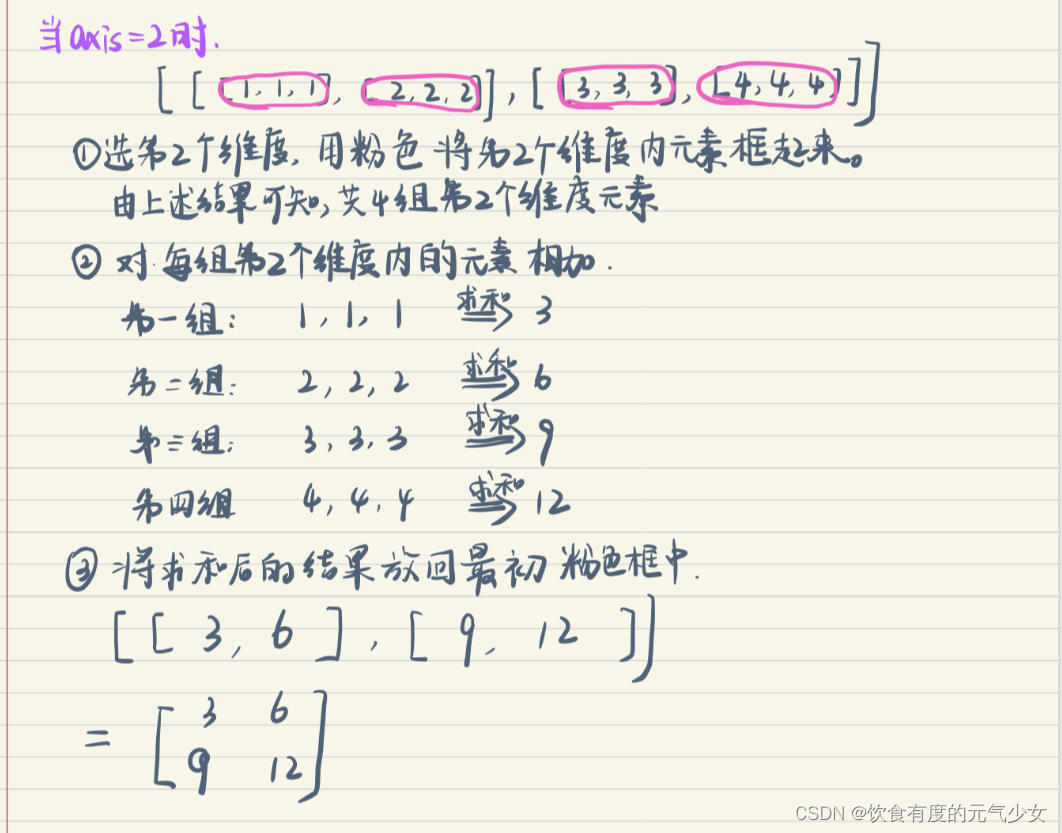 当axis=2时.
[ [ [1, 1, 1], [2, 2, 2]], [ [3, 3, 3], [4, 4, 4]]]
①选第2个维度, 用粉色将第2个维度内元素框起来。
由上述结果可知, 共4组第2个维度元素
② 对每组第2个维度内的元素相加.
第一组: 1, 1, 1 求和⇒ 3
第二组: 2, 2, 2 求和⇒ 6
第三组: 3, 3, 3 求和⇒ 9
第四组 4, 4, 4 求和⇒ 12
③ 将求和后的结果放回最初粉色框中.
[ [ 3, 6 ], [ 9, 12 ]]
= [ 3 6
9 12 ]
CSDN @饮食有度的元气少女